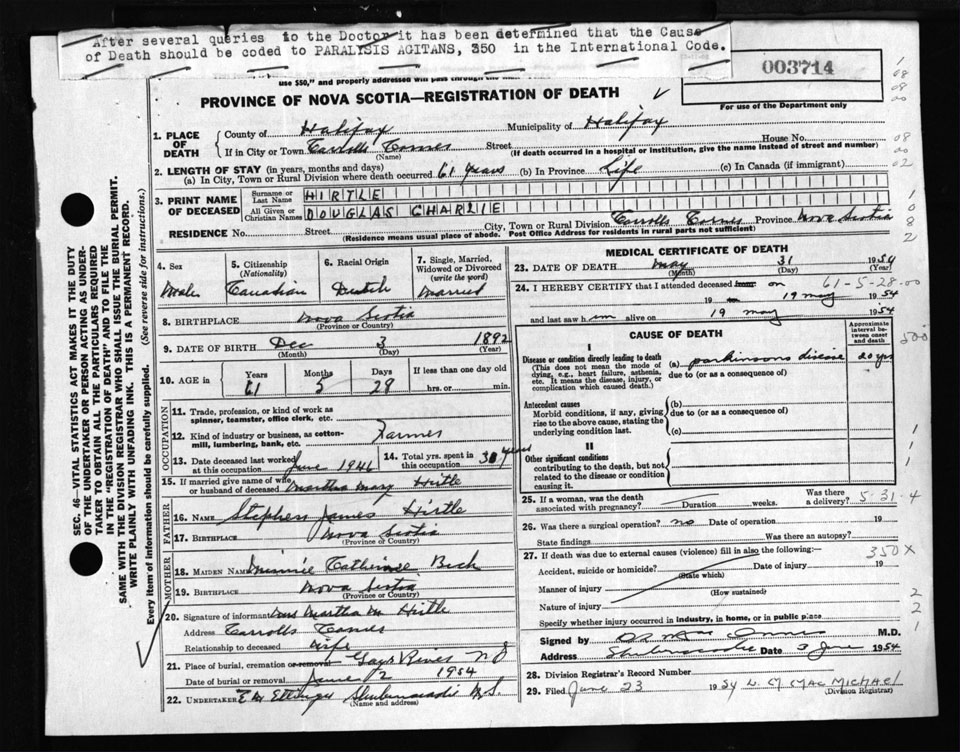 After several queries to the Doctor it has been determined that the Cause
of Death should be coded to PARALYSIS AGITANS, 350 in the International Code.
003714
For use of the Department only
PROVINCE OF NOVA SCOTIA—REGISTRATION OF DEATH
1. PLACE OF DEATH
County of Halifax Municipality of Halifax
If in City or Town Carrolls Corner Street House No.
(Name) (If death occurred in a hospital or institution, give the name instead of street and number)
2. LENGTH OF STAY (in years, months and days)
(a) In City, Town or Rural Division where death occurred 61 years (b) In Province Life (c) In Canada (if immigrant)
3. PRINT NAME OF DECEASED
Surname or Last Name HIRTLE
All Given or Christian Names DOUGLAS CHARLIE
RESIDENCE No. Street City, Town or Rural Division Carrolls Corner Province Nova Scotia
(Residence means usual place of abode. Post Office Address for residents in rural parts not sufficient)
SEC. 46—VITAL STATISTICS ACT MAKES IT THE DUTY
OF THE UNDERTAKER OR PERSON ACTING AS UNDER-
TAKER TO OBTAIN ALL THE PARTICULARS REQUIRED
IN THE "REGISTRATION OF DEATH" AND TO FILE THE
SAME WITH THE DIVISION REGISTRAR WHO SHALL ISSUE THE BURIAL PERMIT.
WRITE PLAINLY WITH UNFADING INK. THIS IS A PERMANENT RECORD.
Every item of information should be carefully supplied. (See reverse side for instructions.)
4. Sex Male
5. Citizenship (Nationality) Canadian
6. Racial Origin Dutch
7. Single, Married, Widowed or Divorced (write the word) Married
8. BIRTHPLACE Nova Scotia
(Province or Country)
9. DATE OF BIRTH Dec 3 1892
(Month) (Day) (Year)
10. AGE in Years 61 Months 5 Days 28 If less than one day old hrs. or min.
OCCUPATION
11. Trade, profession, or kind of work as spinner, teamster, office clerk, etc.
12. Kind of industry or business, as cotton-mill, lumbering, bank, etc. Farmer
13. Date deceased last worked at this occupation June 1946
14. Total yrs. spent in this occupation 30 years
15. If married give name of wife or husband of deceased Martha May Hirtle
FATHER
16. NAME Stephen James Hirtle
17. BIRTHPLACE Nova Scotia
(Province or Country)
MOTHER
18. MAIDEN NAME Minnie Catherine
19. BIRTHPLACE Nova Scotia
(Province or Country)
20. Signature of informant Mrs Martha M Hirtle
Address Carrolls Corner
Relationship to deceased wife
21. Place of burial, cremation or removal Gays River NS
Date of burial or removal June 2 1954
22. UNDERTAKER Shubenacadie N.S.
(Name and address)
MEDICAL CERTIFICATE OF DEATH
23. DATE OF DEATH May 31 1954
(Month) (Day) (Year)
61-5-28-00
24. I HEREBY CERTIFY that I attended deceased from on
19 to 19 May 1954
and last saw h em alive on 19 May 1954
CAUSE OF DEATH
Approximate interval between onset and death
I
Disease or condition directly leading to death
(This does not mean the mode of dying, e.g., heart failure, asthenia, etc. It means the disease, injury, or complication which caused death.)
(a) parkinsons disease 20 yrs
due to (or as a consequence of)
Antecedent causes
Morbid conditions, if any, giving rise to the above cause, stating the underlying condition last.
(b)
due to (or as a consequence of)
(c)
II
Other significant conditions
contributing to the death, but not related to the disease or condition causing it.
25. If a woman, was the death associated with pregnancy? Duration weeks. Was there a delivery?
5-31-4
26. Was there a surgical operation? no Date of operation 19
State findings Was there an autopsy?
27. If death was due to external causes (violence) fill in also the following:—
350X
Accident, suicide or homicide? Date of injury 19
(State which)
Manner of injury
(How sustained)
Nature of injury
Specify whether injury occurred in industry, in home, or in public place
Signed by M.D.
Address Shubenacadie Date 3 June 1954
28. Division Registrar's Record Number
29. Filed June 23 1954 L. M MacMichael
(Division Registrar)